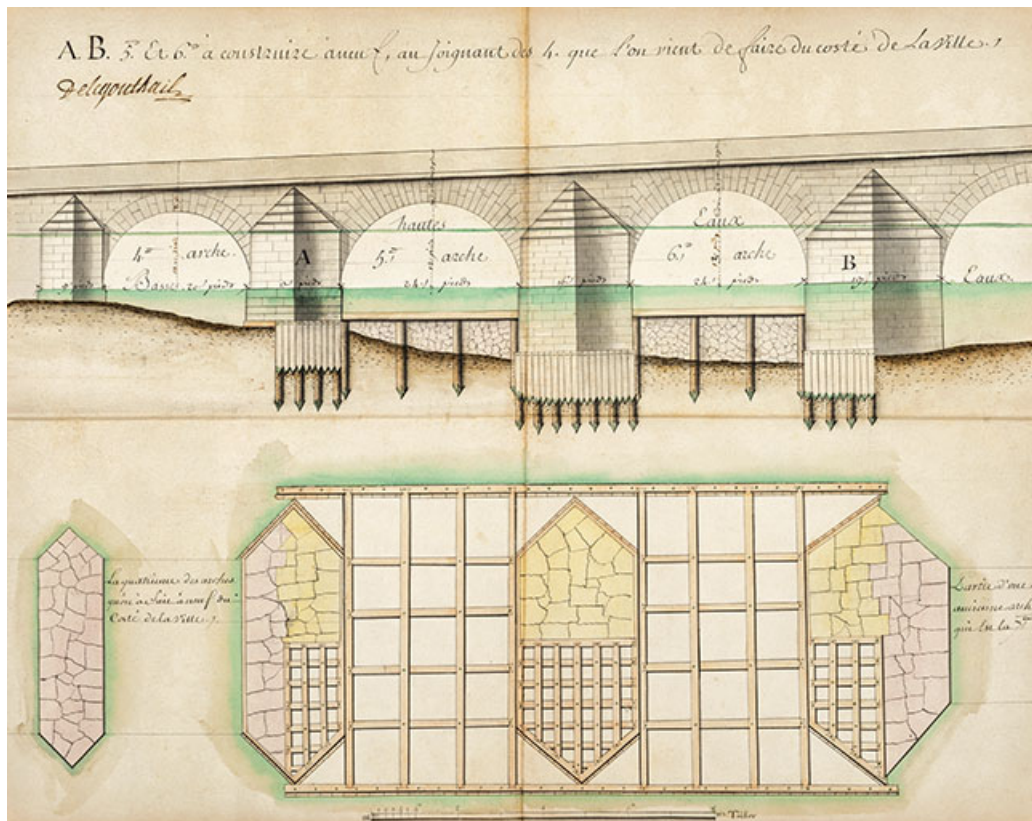 A. B. 5.e Et 6.e à construire à neuf, au joignant des 4. que l'on vient de faire du costé de La Ville.
hautes
Eaux
4.e arche.
A
5.e arche
6.e arche
B
Basse
pieds
pieds
24 pieds
pieds
24 pieds
pieds
Eaux
La quatrieme des arches
à faire à neuf du
Costé de la Ville.
Partie d'une
ancienne arch